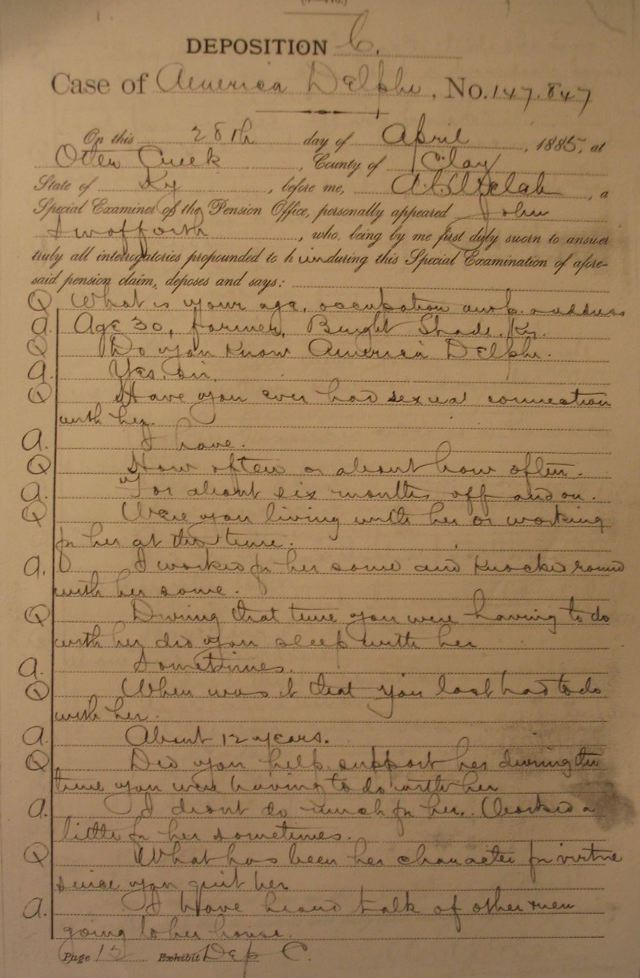 DEPOSITION C.
Case of America Delph, No. 147.847
On this 28th day of April, 1885, at
Otter Creek, County of Clay
State of Ky, before me, a
Special Examiner of the Pension Office, personally appeared John
Swofforth, who, being by me first duly sworn to answer
truly all interrogatories propounded to h im during this Special Examination of afore-
said pension claim, deposes and says:
Q What is your age, occupation and p.o. address
a. Age 30, farmer, Bright Shade, Ky.
Q Do you know America Delph.
a. Yes sir.
Q Have you ever had sexual connection
with her.
a. I have.
Q How often or about how often.
a. For about six months off and on.
Q Were you living with her or working
for her at this time.
a. I worked for her some and knocked round
with her some.
Q During that time you were having to do
with her did you sleep with her
a. Sometimes.
Q When was it that you last had to do
with her.
a. About 12 years.
Q Did you help support her during the
time you were having to do with her
a. I didnt do much for her. Worked a
little for her sometimes.
Q What has been her character for virtue
since you quit her
a. I have heard talk of other men
going to her house.
Page 12 Exhibit Dep C.